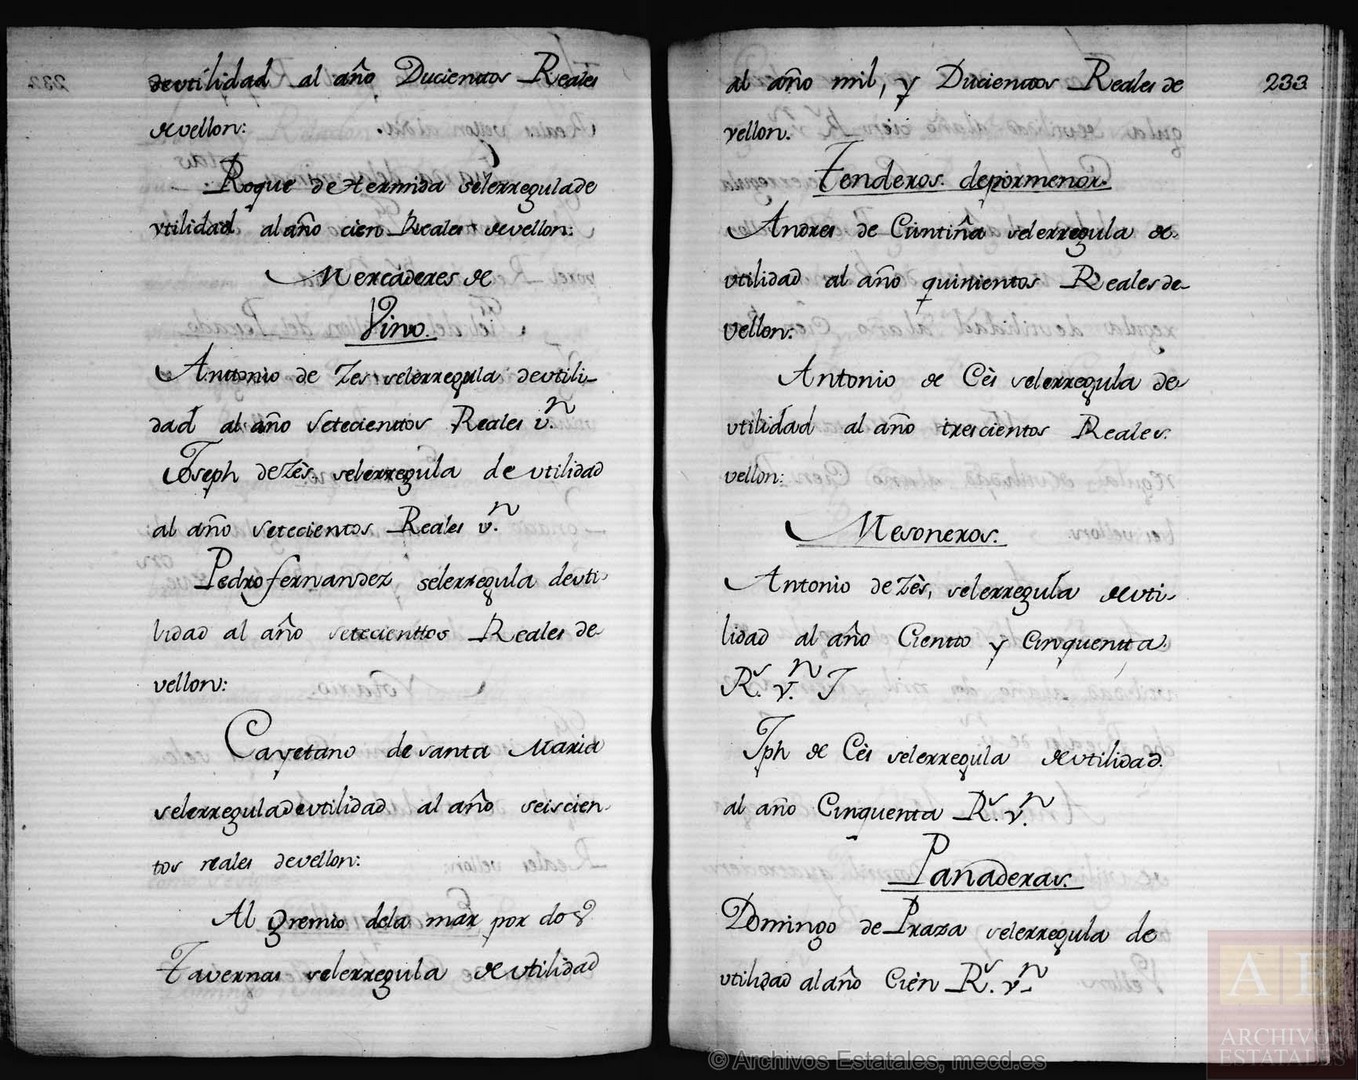 deutilidad al año Ducienttos Reales
de vellon:
Roque de Hermida selerregula de
utilidad al año cien Reales de vellon:
Mercaderes de
Vino.
Anttonio de Zes selerregula de utili-
dad al año settecienttos Reales v.n
Joseph de Zès selerregula de utilidad
al año settecientos Reales v.n
Pedro fernandez selerregula deuti-
lidad al año settecienttos Reales de
vellon:
Cayetano de santa Maria
selerregula de utilidad al año seiscien-
tos reales de vellon:
Al Gremio dela mar por dos
Tavernas selerregula de utilidad
al año mil, y Ducienttos Reales de
vellon.
233
Tenderos de pormenor.
Andres de Cuntiña selerregula de
utilidad al año quinientos Reales de
vellon:
Antonio de Cès selerregula de
utilidad al año trescientos Reales
vellon:
Mesoneros.
Antonio de Zès, selerregula de uti-
lidad al año Cientto y Cinquentta
R.s v.n
Jph de Cès selerregula de utilidad
al año Cinquenta R.s v.n
Panaderas.
Domingo de Praza selerregula de
utilidad al año Cien R.s v.n
AE
ARCHIVOS
ESTATALES
© Archivos Estatales, mecd.es